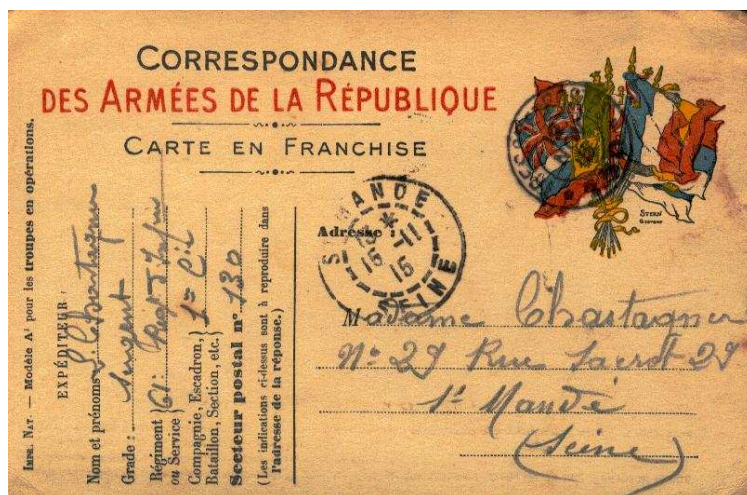 CORRESPONDANCE
DES ARMÉES DE LA RÉPUBLIQUE
CARTE EN FRANCHISE
IMPR. NAT. — Modèle A¹ pour les troupes en opérations.
EXPÉDITEUR :
Nom et prénoms Chastagner
Grade : Sergent
Régiment
ou Service } 61e Régt
Compagnie, Escadron,
Bataillon, Section, etc. } 1re Cie
Secteur postal n° 130
(Les indications ci-dessus sont à reproduire dans
l'adresse de la réponse.)
ST MANDE
SEINE
Adresse :
STERN
GRAVEUR
Madame Chastagner
N° 29 Rue Sacrot 29
St Mandé
(Seine)